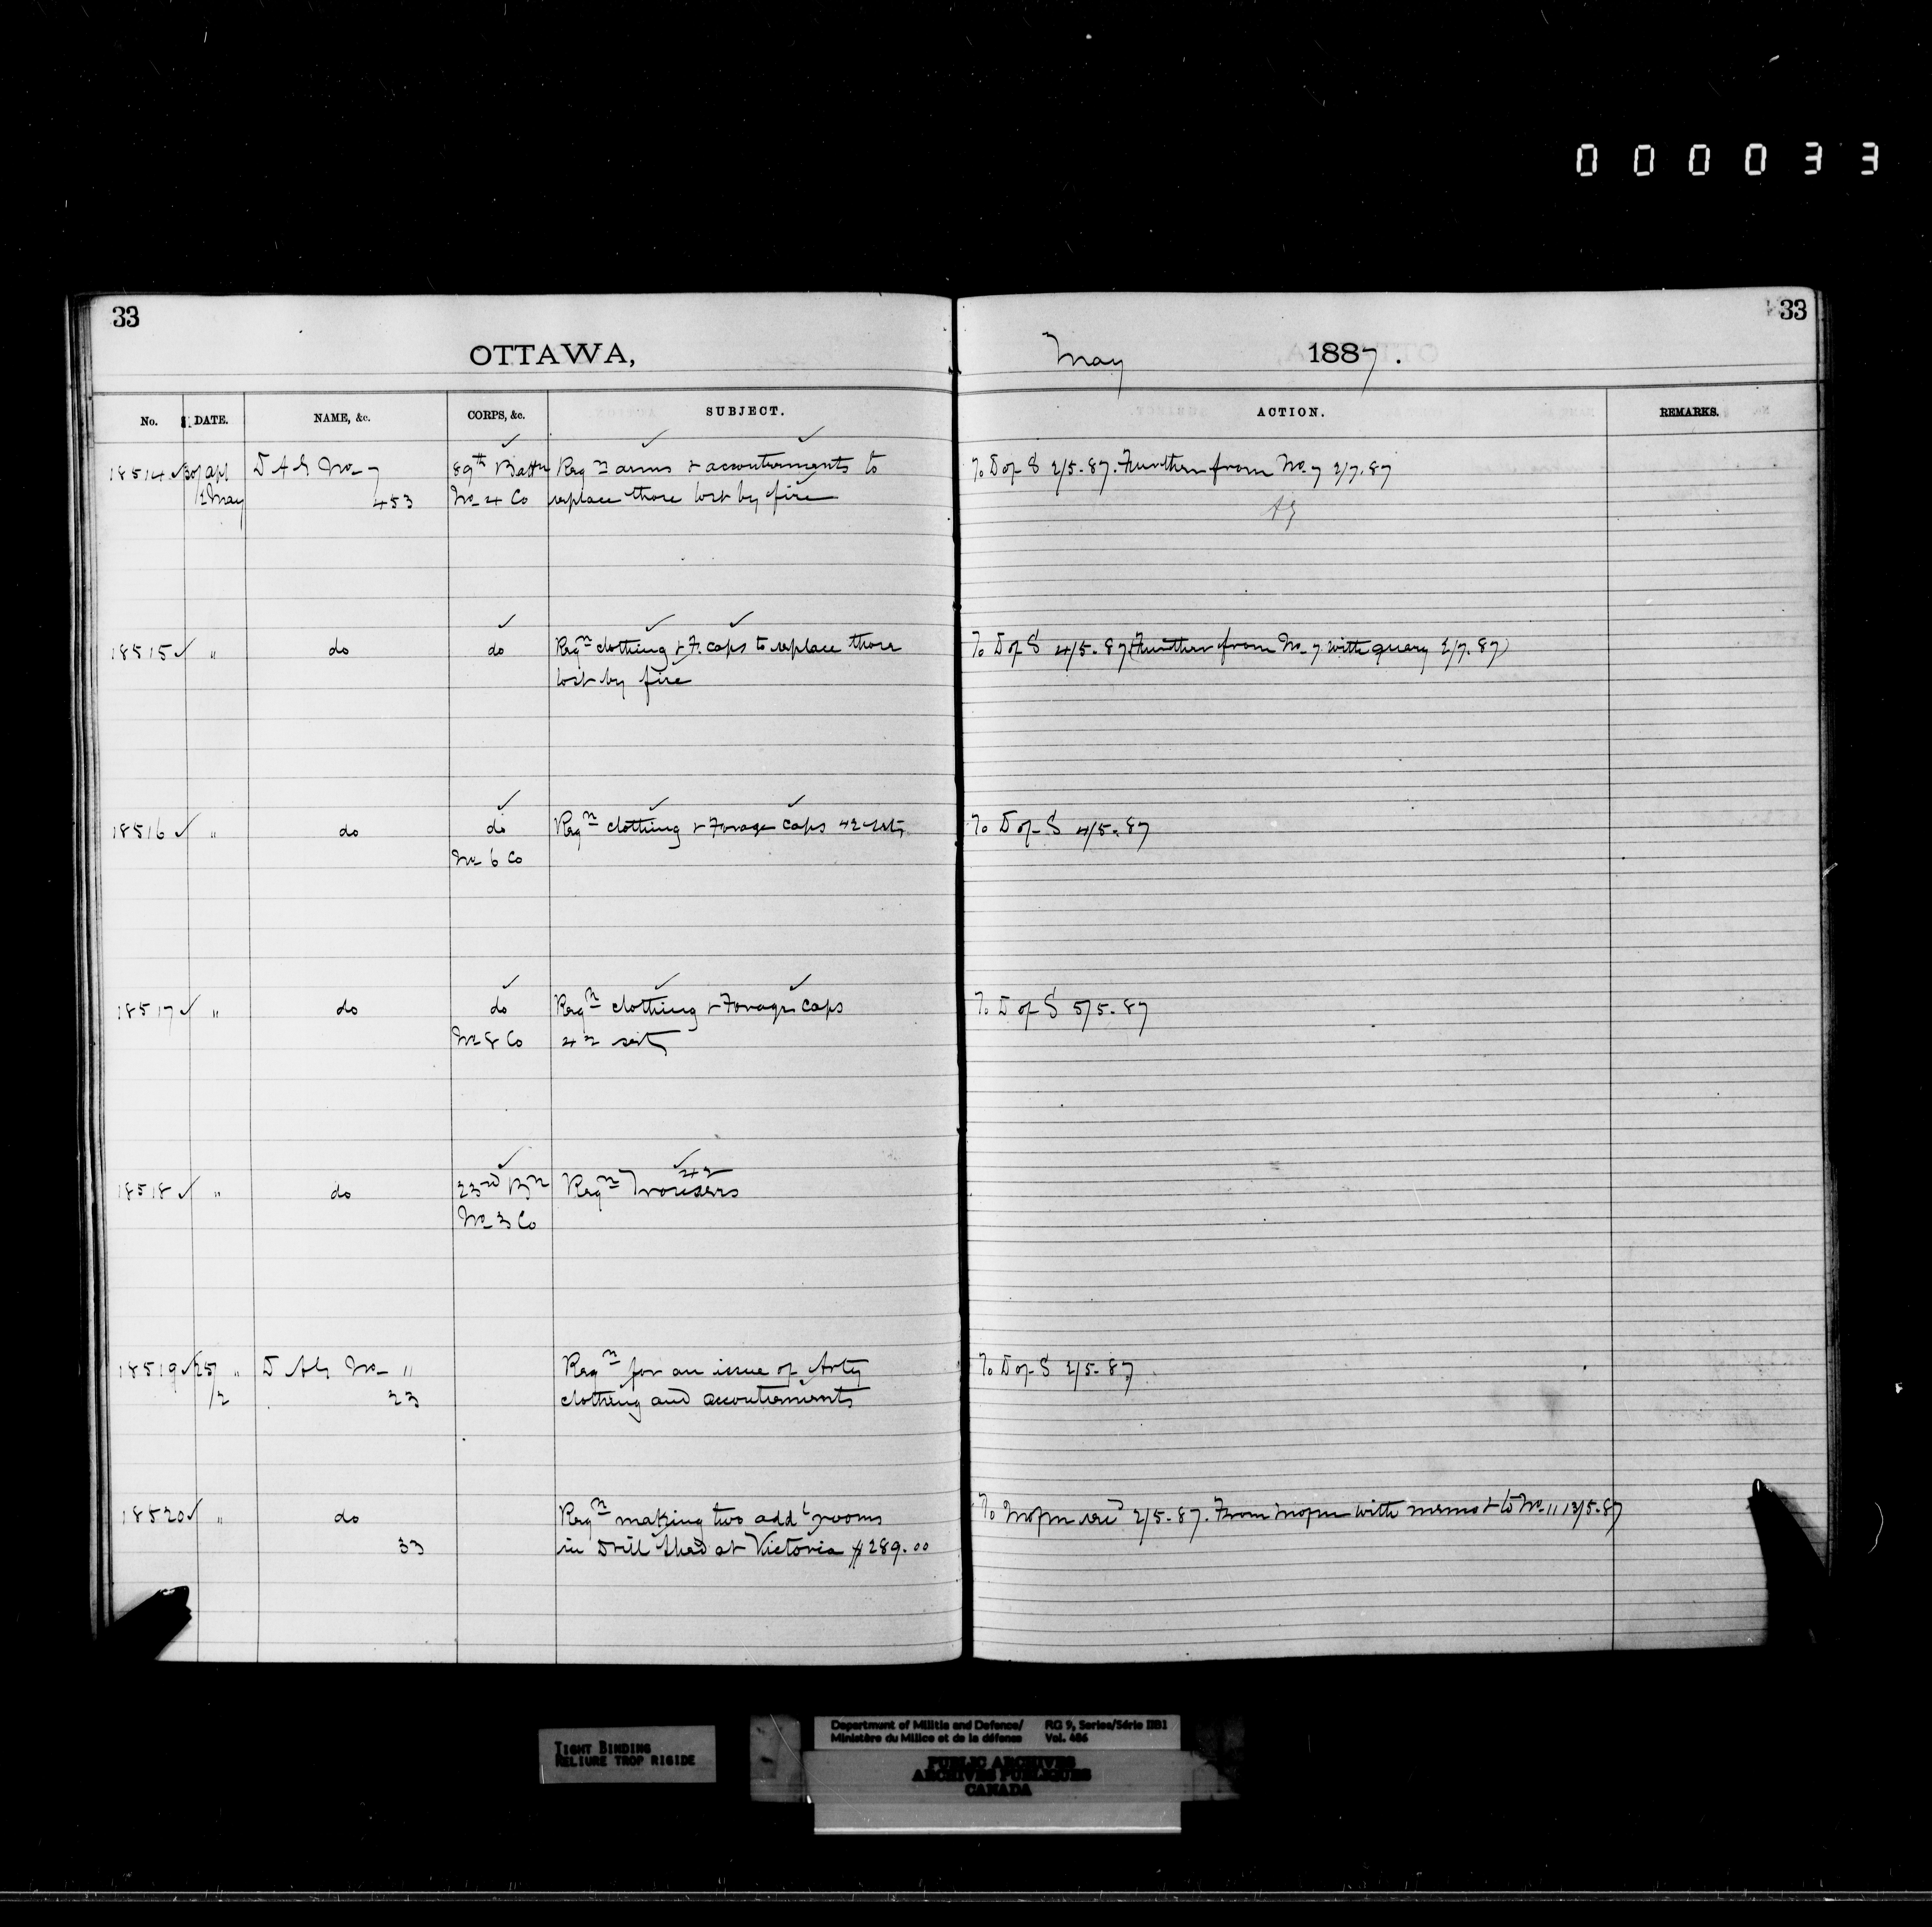 000033
33
33
OTTAWA,
May 1887.
No. DATE. NAME, &c. CORPS, &c. SUBJECT. ACTION. REMARKS.
18514 ✓ 30/ apl D A G No 7 89th Battn Reqn arms & accoutrements to To D of S 2/5.87. Further from No. 7 2/7.87
/2 May 453 No 4 Co replace those lost by fire
AG
18515 ✓ " do do Reqn clothing & F. caps to replace those To D of S 4/5.87 (Further from No. 7 with query 2/7.87)
lost by fire
18516 ✓ " do do Reqn clothing & Forage Caps 42 sets To D of S 4/5.87
No 6 Co
18517 ✓ " do do Reqn clothing & Forage Caps To D of S 5/5.87
No 8 Co 42 sets
42
18518 ✓ " do 23rd Bn Reqn Trousers
No 3 Co
18519 ✓ 25/ " D AG No 11 Reqn for an issue of Arty To D of S 2/5.87
/2 23 clothing and accoutrements
18520 ✓ " do Reqn making two addl rooms 2/5.87. From with memo & to No. 11 13/5.87
33 in Drill Shed at Victoria $289.00
TIGHT BINDING
RELIURE TROP RIGIDE
Department of Militia and Defence/ RG 9, Series/Série IIB1
Ministère du Milice et de la défense Vol. 486
PUBLIC ARCHIVES
ARCHIVES PUBLIQUES
CANADA